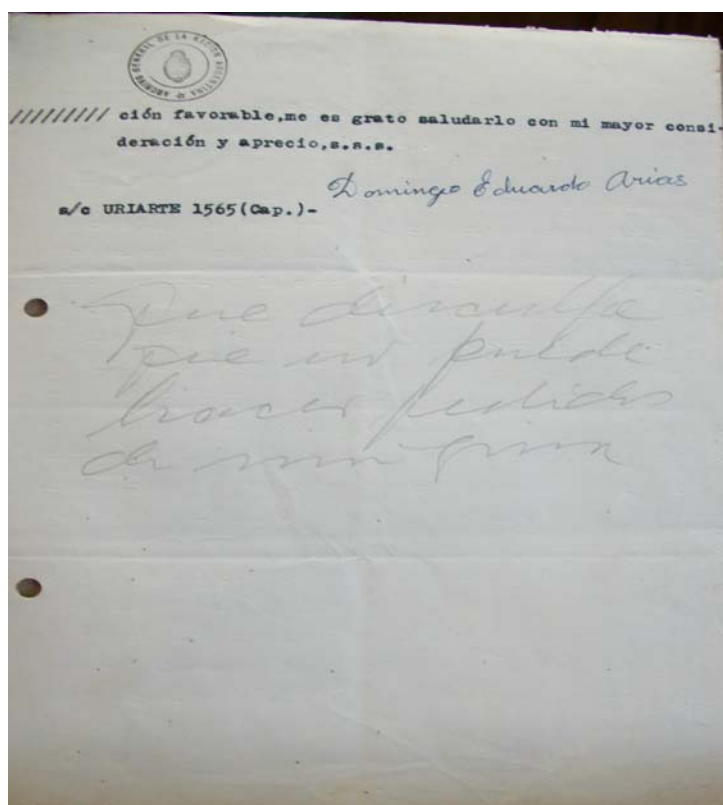 ARCHIVO GENERAL DE LA NACION ARGENTINA
///////// ción favorable,me es grato saludarlo con mi mayor consi-
deración y aprecio,s.s.s.
Domingo Eduardo Arias
s/c URIARTE 1565(Cap.)-
Que disculpe
que no puede
hacer pedidos
de ninguna